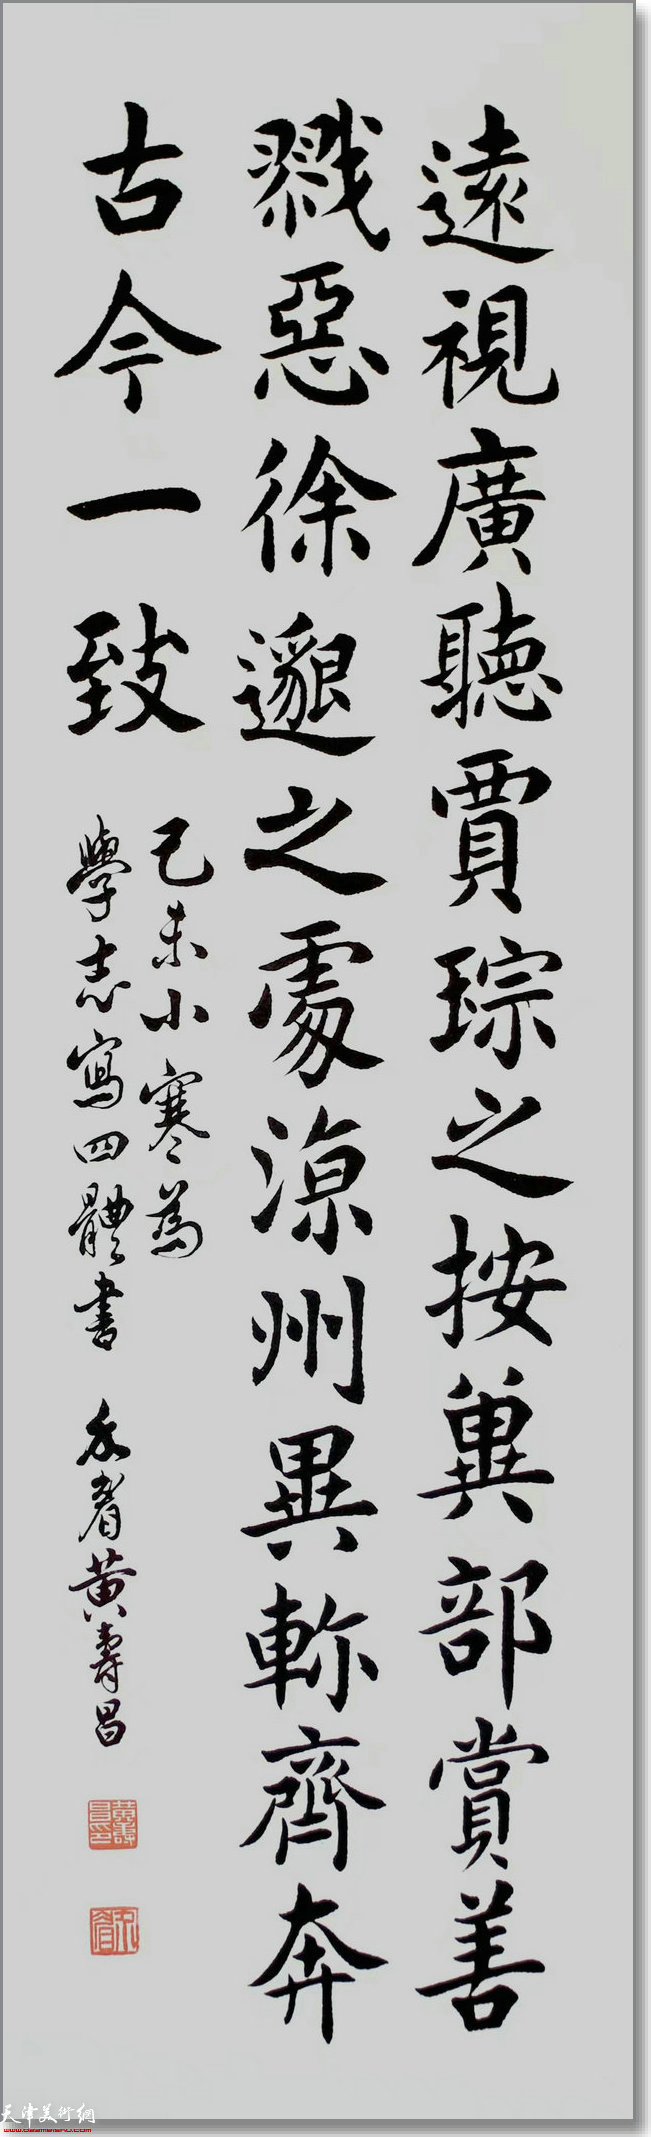 遠視廣聽賈琮之按兾部賞善
戮惡徐邈之處涼州異軫齊奔
古今一致
己未小寒為
學志寫四體書 黃壽昌
天津美術網